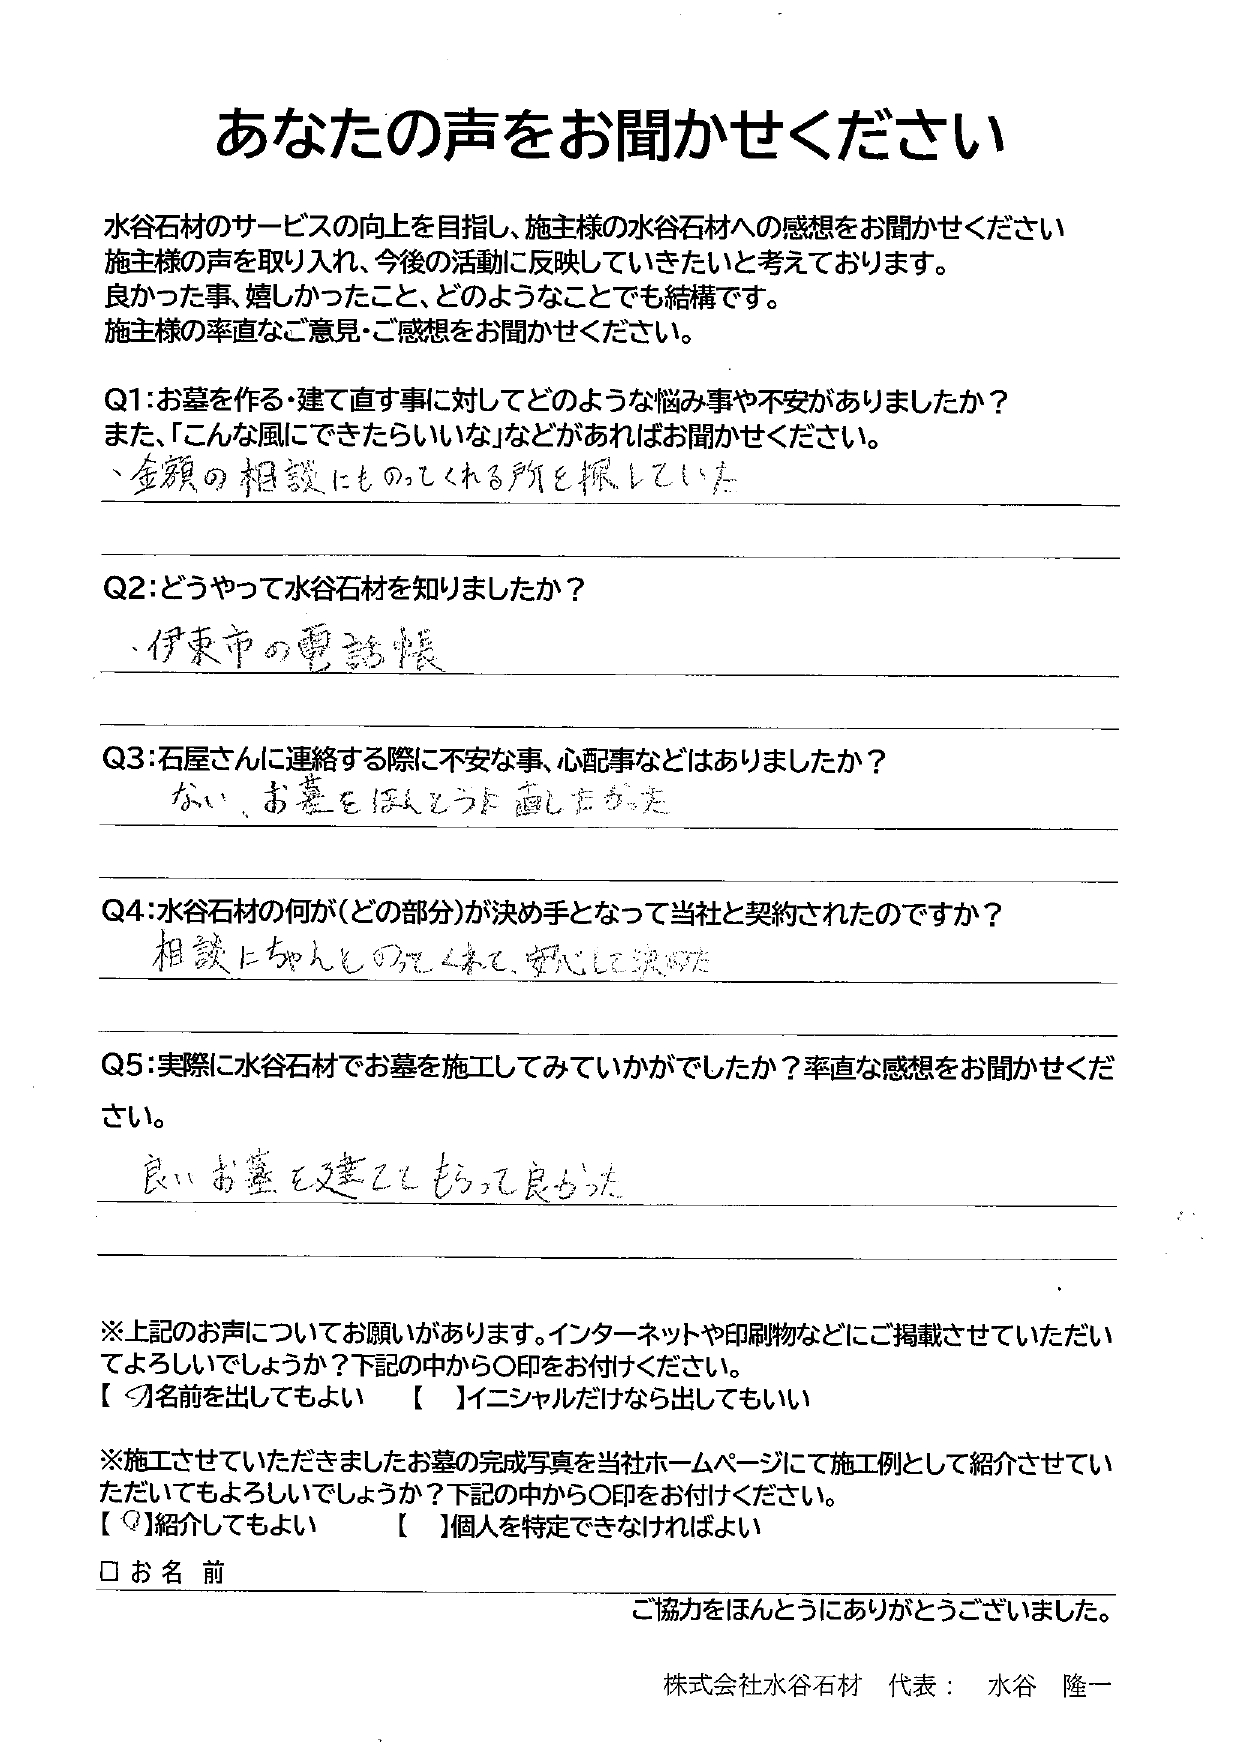 あなたの声をお聞かせください
水谷石材のサービスの向上を目指し、施主様の水谷石材への感想をお聞かせください
施主様の声を取り入れ、今後の活動に反映していきたいと考えております。
良かった事、嬉しかったこと、どのようなことでも結構です。
施主様の率直なご意見・ご感想をお聞かせください。
Q1:お墓を作る・建て直す事に対してどのような悩み事や不安がありましたか？
また、「こんな風にできたらいいな」などがあればお聞かせください。
、金額の相談にものってくれる所を探していた
Q2:どうやって水谷石材を知りましたか？
・伊東市の電話帳
Q3:石屋さんに連絡する際に不安な事、心配事などはありましたか？
ない、お墓をほんとうに直したかった
Q4:水谷石材の何が(どの部分)が決め手となって当社と契約されたのですか？
相談にちゃんとのってくれて、安心して決めた
Q5:実際に水谷石材でお墓を施工してみていかがでしたか？率直な感想をお聞かせくだ
さい。
良いお墓を建ててもらって良かった
※上記のお声についてお願いがあります。インターネットや印刷物などにご掲載させていただい
てよろしいでしょうか？下記の中から〇印をお付けください。
【 〇】名前を出してもよい 【 】イニシャルだけなら出してもいい
※施工させていただきましたお墓の完成写真を当社ホームページにて施工例として紹介させてい
ただいてもよろしいでしょうか？下記の中から〇印をお付けください。
【 〇】紹介してもよい 【 】個人を特定できなければよい
□ お 名 前
ご協力をほんとうにありがとうございました。
株式会社水谷石材 代表： 水谷 隆一